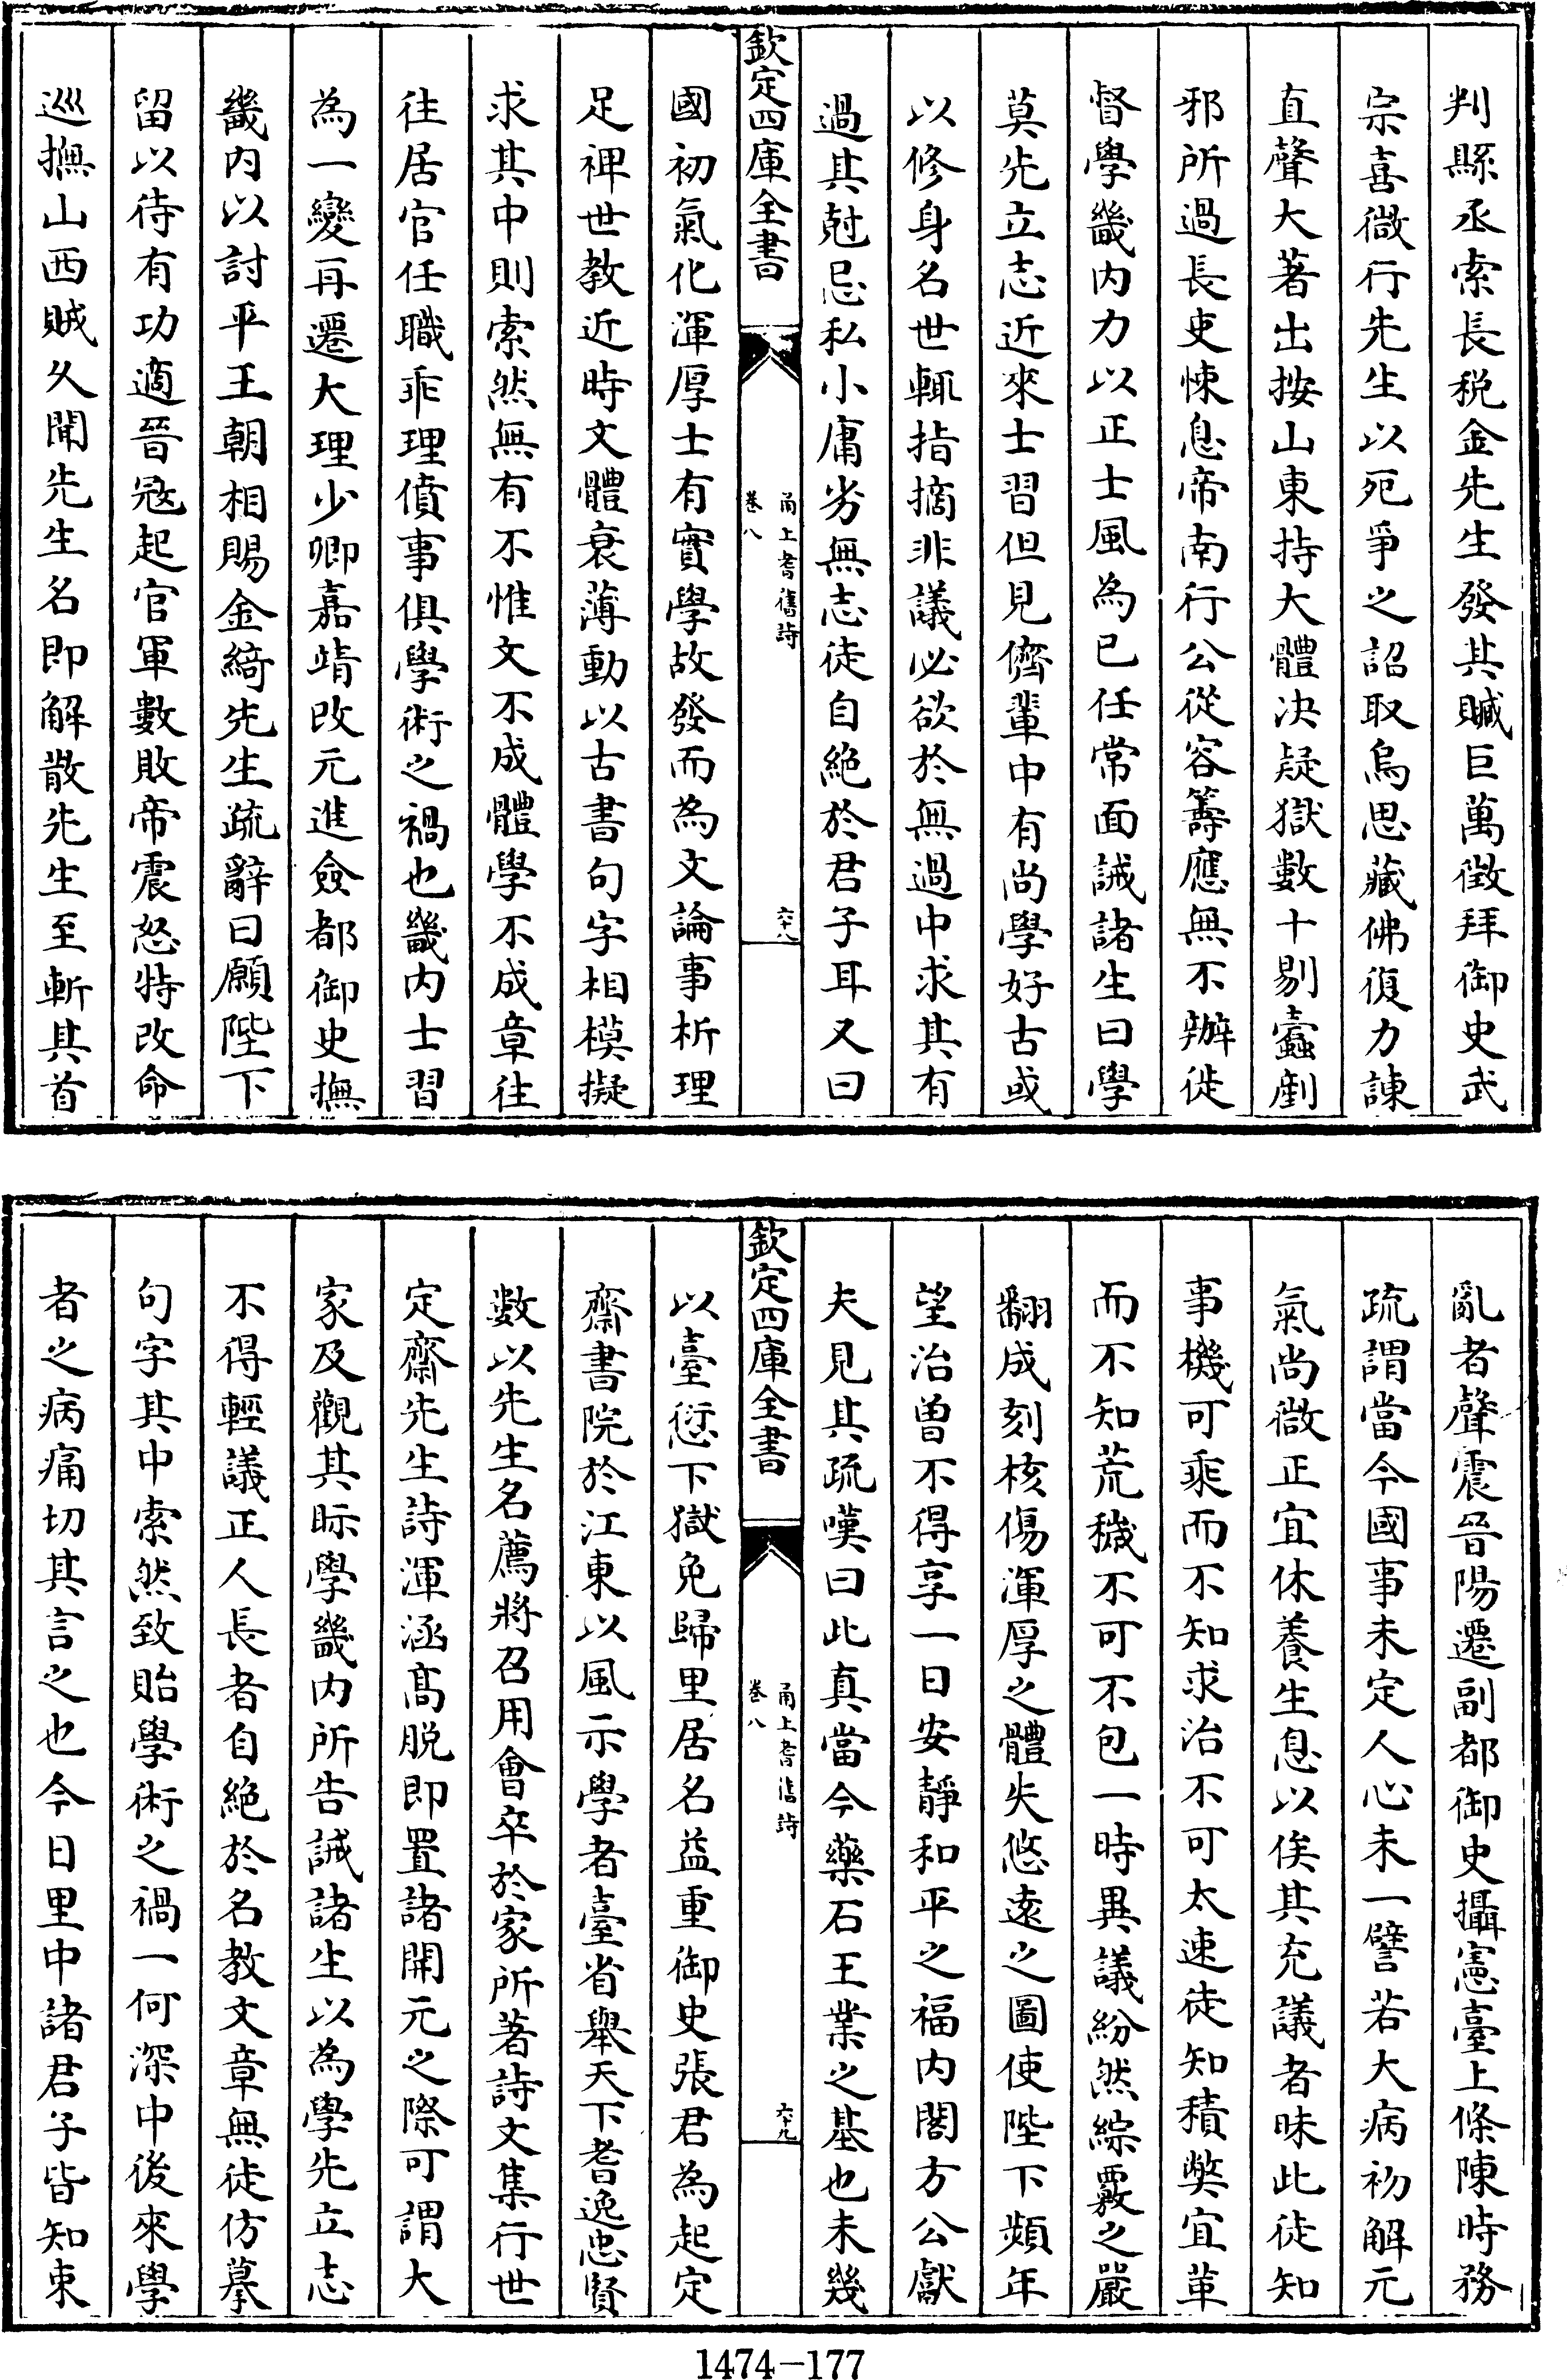 判縣丞索長税金先生發其贓巨萬徴拜御史武
宗喜微行先生以死爭之詔取烏思藏佛復力諫
直聲大著出按山東持大體决疑獄數十剔蠧剷
邪所過長吏悚息帝南行公從容籌應無不辦徙
督學畿内力以正士風為已任常面誡諸生曰學
莫先立志近來士習但見儕輩中有尚學好古或
以修身名世輒指摘非議必欲於無過中求其有
過其尅忌私小庸劣無志徒自絶於君子耳又曰
欽定四庫全書
甬上耆舊詩
卷八
六十八
國初氣化渾厚士有實學故發而為文論事析理
足裨世教近時文體衰薄動以古書句字相模擬
求其中則索然無有不惟文不成體學不成章往
往居官任職乖理僨事俱學術之禍也畿内士習
為一變再遷大理少卿嘉靖改元進僉都御史撫
畿内以討平王朝相賜金綺先生疏辭曰願陛下
留以待有功適晉冦起官軍數敗帝震怒特改命
巡撫山西賊乆聞先生名即解散先生至斬其首
亂者聲震晉陽遷副都御史攝憲臺上條陳時務
疏謂當今國事未定人心未一譬若大病初解元
氣尚微正宜休養生息以俟其充議者昧此徒知
事機可乘而不知求治不可太速徒知積弊宜革
而不知荒穢不可不包一時異議紛然綜覈之嚴
翻成刻核傷渾厚之體失悠遠之圖使陛下頻年
望治曽不得享一日安靜和平之福内閣方公獻
夫見其疏嘆曰此真當今藥石王業之基也未幾
欽定四庫全書
甬上耆舊詩
卷八
六十九
以臺愆下獄免歸里居名益重御史張君為起定
齋書院於江東以風示學者臺省舉天下耆逸忠賢
數以先生名薦將召用㑹卒於家所著詩文集行世
定齋先生詩渾涵髙脱即置諸開元之際可謂大
家及觀其眎學畿内所告誡諸生以為學先立志
不得輕議正人長者自絶於名教文章無徒仿摹
句字其中索然致貽學術之禍一何深中後來學
者之病痛切其言之也今日里中諸君子皆知束
1474-177